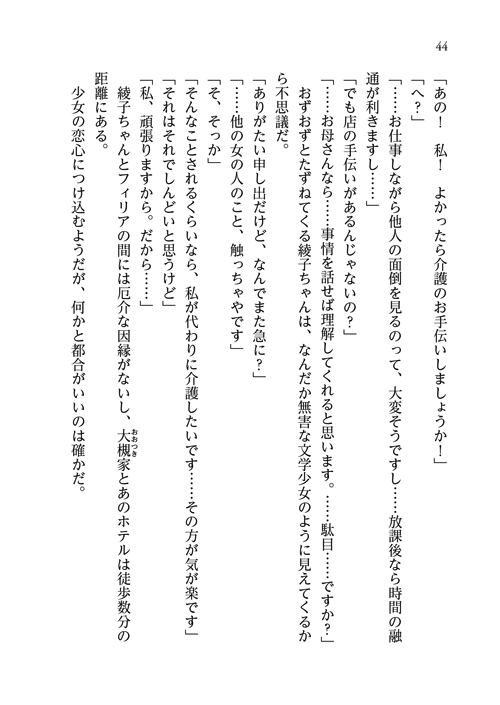 44
「あの！　私！　よかったら介護のお手伝いしましょうか！」
「へ？」
「……お仕事しながら他人の面倒を見るのって、大変そうですし……放課後なら時間の融
通が利きますし……」
「でも店の手伝いがあるんじゃないの？」
「……お母さんなら……事情を話せば理解してくれると思います。……駄目……ですか？」
　おずおずとたずねてくる綾子ちゃんは、なんだか無害な文学少女のように見えてくるか
ら不思議だ。
「ありがたい申し出だけど、なんでまた急に？」
「……他の女の人のこと、触っちゃやです」
「そ、そっか」
「そんなことされるくらいなら、私が代わりに介護したいです……その方が気が楽です」
「それはそれでしんどいと思うけど」
「私、頑張りますから。だから……」
　綾子ちゃんとフィリアの間には厄介な因縁がないし、大槻家とあのホテルは徒歩数分の
おおつき
距離にある。
　少女の恋心につけ込むようだが、何かと都合がいいのは確かだ。